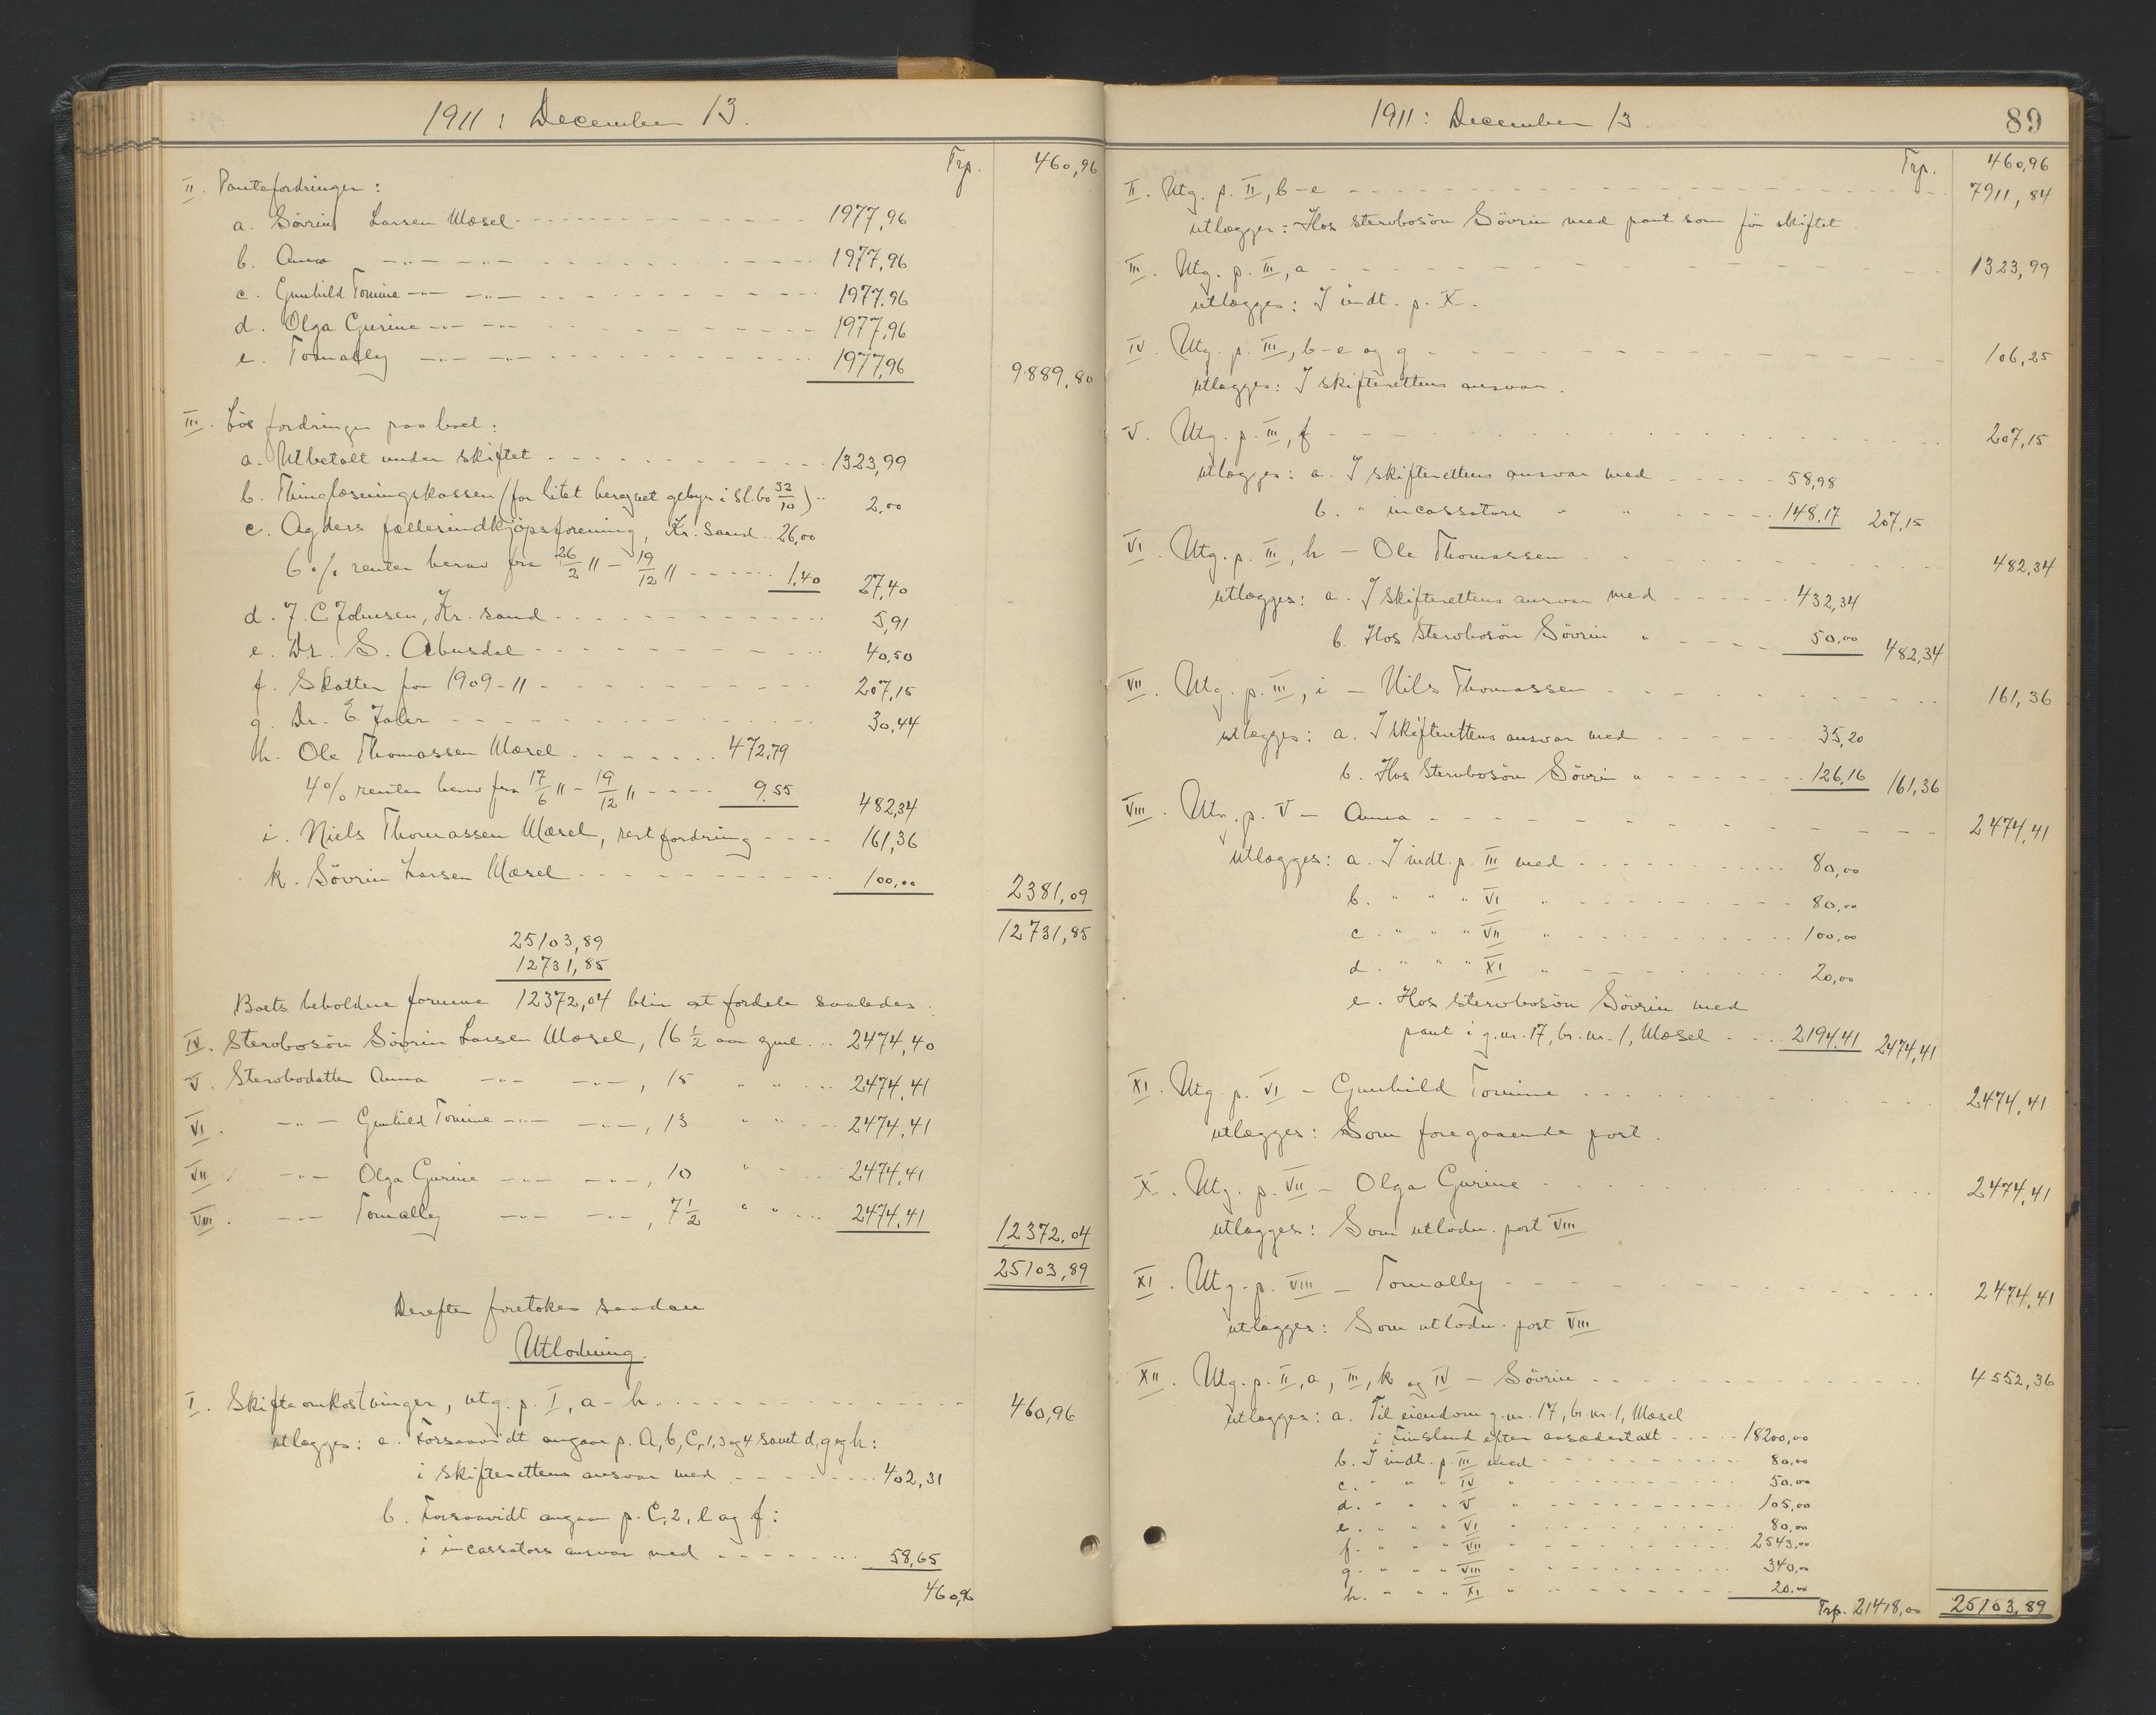 1911 : December 13.
Trp. 460,96
II. Pantefordringer :
a. Sövrin Larsen Mæsel - - - 1977,96
b. Anna —"— —"— - - - 1977,96
c. Gunhild Tomine —"— —"— - - - 1977,96
d. Olga Gurine —"— —"— - - - 1977,96
e. Tomally —"— —"— - - - 1977,96 9889,80
III. Lös fordringer paa boet :
a. Utbetalt under skiftet - - - 1323,99
b. Thinglæsningskassen (for litet beregnet gebyr i Sl.bo 32/10) - - 2,00
c. Agders fællesindkjöpsforening, Kr. sand - - 26,00
6 % renter herav fra 26/2 11 - 19/12 11 - - - 1,40 27,40
d. J. C. Johnsen, Kr. sand - - - 5,91
e. Dr. S. Abusdal - - - 40,50
f. Skatter for 1909-11 - - - 207,15
g. Dr. E. Jaler - - - 30,44
h. Ole Thomassen Mæsel - - - 472,79
4 % renter herav fra 17/6 11 - 19/12 11 - - - 9,55 482,34
i. Niels Thomassen Mæsel, restfordring - - - 161,36
k. Sövrin Larsen Mæsel - - - 100,00 2381,09
12731,85
25103,89
12731,85
Boets beholdne formue 12372,04 blir at fordele saaledes :
IV. Stervbosön Sövrin Larsen Mæsel, 16 1/2 aar gml. - - 2474,40
V. Stervbodatter Anna —"— —"—, 15 " " - - 2474,41
VI. —"— Gunhild Tomine —"— —"—, 13 " " - - 2474,41
VII. —"— Olga Gurine —"— —"—, 10 " " - - 2474,41
VIII. —"— Tomally —"— —"—, 7 1/2 " " - - 2474,41 12372,04
25103,89
Derefter foretokes saadan
Utlodning.
I. Skifteomkostninger, utg. p. I, a-h - - - 460,96
utlægges: a. Forsaavidt angaar p. A, b, C, 1, 3 og 4 samt d, g og h :
i skifterettens ansvar med - - - 402,31
b. Forsaavidt angaar p. C, 2, e og f :
i incassators ansvar med - - - 58,65
460,96
1911 : December 13.
89
Trp. 460,96
II. Utg. p. II, b-e - - - 7911,84
utlægges: Hos stervbosön Sövrin med pant som för skiftet
III. Utg. p. III, a - - - 1323,99
utlægges: I indt. p. X.
IV. Utg. p. III, b-e og g - - - 106,25
utlægges: I skifterettens ansvar.
V. Utg. p. III, f - - - 207,15
utlægges: a. I skifterettens ansvar med - - - 58,98
b. " incassators " " - - - 148,17 207,15
VI. Utg. p. III, h - Ole Thomassen - - - 482,34
utlægges: a. I skifterettens ansvar med - - - 432,34
b. Hos stervbosön Sövrin " - - - 50,00 482,34
VII. Utg. p. III, i - Nils Thomassen - - - 161,36
utlægges: a. I skifterettens ansvar med - - - 35,20
b. Hos stervbosön Sövrin " - - - 126,16 161,36
VIII. Utg. p. V - Anna - - - 2474,41
utlægges: a. I indt. p. III med - - - 80,00
b. " " " VI " - - - 80,00
c. " " " VII " - - - 100,00
d. " " " XI " - - - 20,00
e. Hos stervbosön Sövrin med
pant i g.nr. 17, br.nr. 1, Mæsel - - - 2194,41 2474,41
XI. Utg. p. VI - Gunhild Tomine - - - 2474,41
utlægges: Som foregaaende post.
X. Utg. p. VII - Olga Gurine - - - 2474,41
utlægges: Som utlodn. post VIII
XI. Utg. p. VIII - Tomally - - - 2474,41
utlægges: Som utlodn. post VIII
XII. Utg. p. II, a, III, k og IV - Sövrin - - - 4552,36
utlægges: a. Til eiendom g.nr. 17, br.nr. 1, Mæsel
i Finsland efter aasædestakt - - - 18200,00
b. I indt. p. III med - - - 80,00
c. " " " IV " - - - 50,00
d. " " " V " - - - 105,00
e. " " " VI " - - - 80,00
f. " " " VII " - - - 2543,00
g. " " " VIII " - - - 340,00
h. " " " XI " - - - 20,00
Trp. 21418,00 25103,89